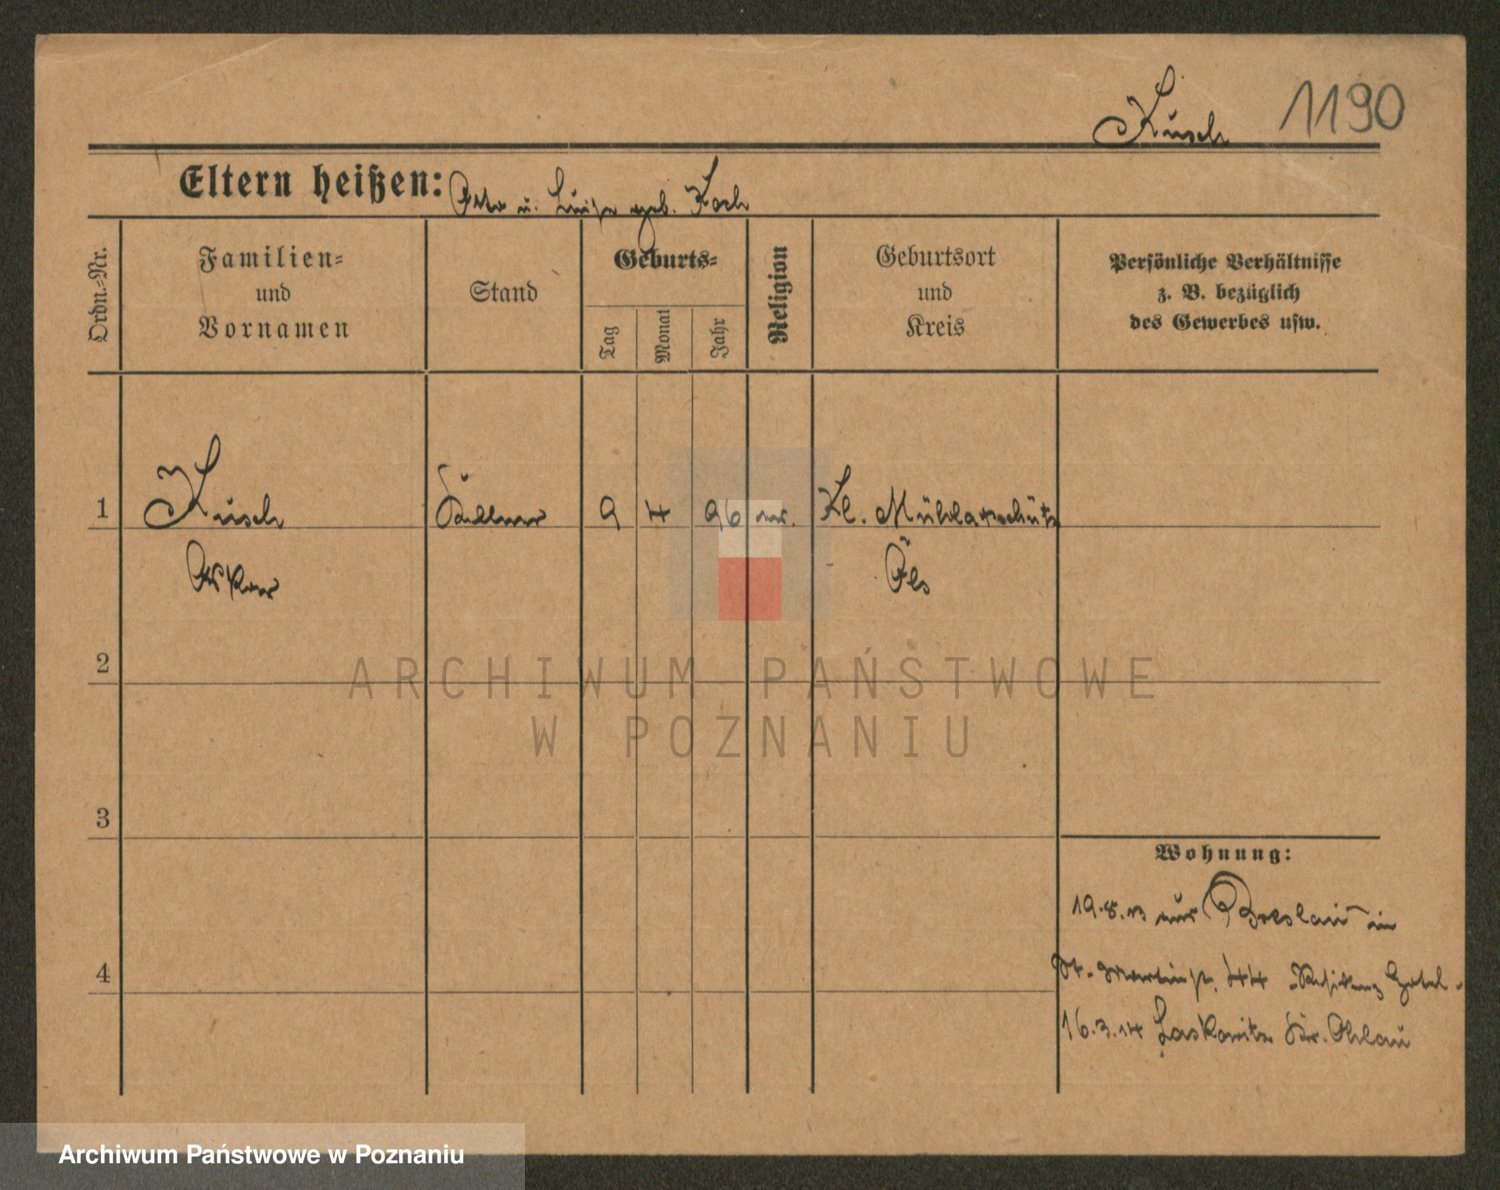 Kusch 1190
Eltern heißen: Otto u. Luise geb. Koch
Ordn.-Nr.
Familien-
und
Vornamen
Stand
Geburts-
Tag
Monat
Jahr
Religion
Geburtsort
und
Kreis
Persönliche Verhältnisse
z. B. bezüglich
des Gewerbes usw.
1 Kusch Kellner 9 4 96 ev. Kl. Mühlatschütz
Oskar Öls
2
ARCHIWUM PAŃSTWOWE
W POZNANIU
3
Wohnung:
19.8.13 aus Breslau in
St. Martinst. 44 Hotel
4
16.3.14 Laskowitz Kr. Ohlau
Archiwum Państwowe w Poznaniu